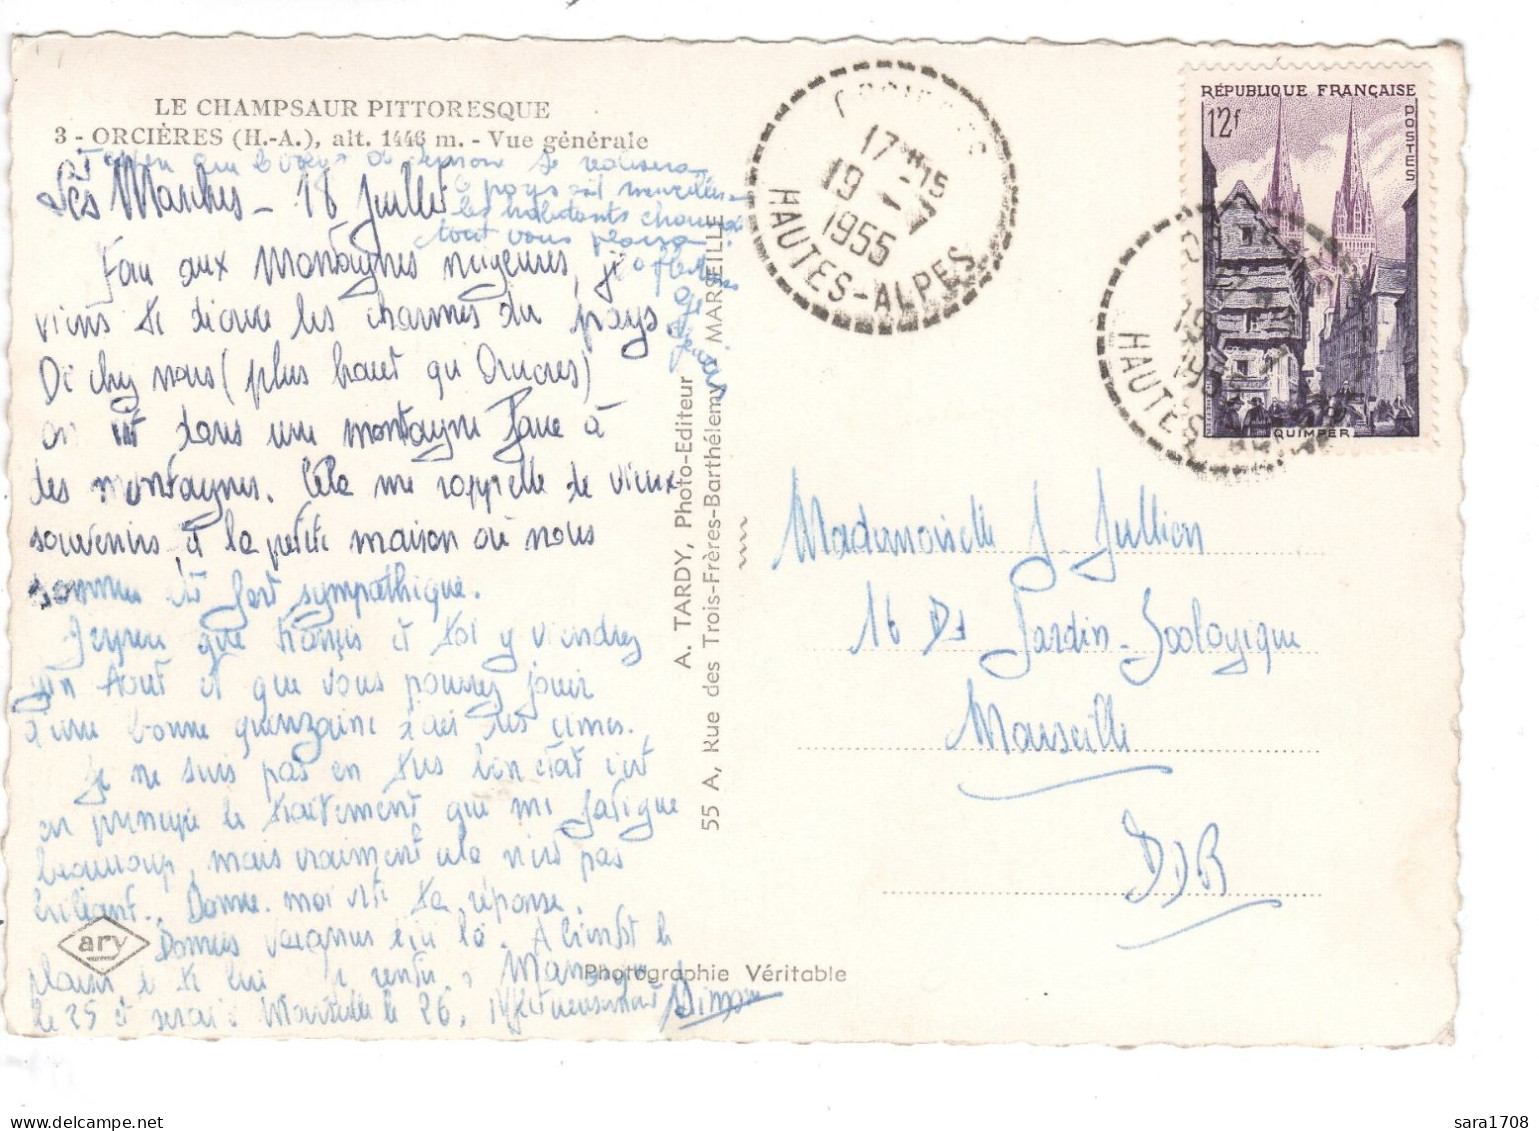 LE CHAMPSAUR PITTORESQUE
3 - ORCIÈRES (H.-A.), alt. 1446 m. - Vue générale
se réalisera
le pays est merveilleux
les habitants
tout vous plaira
Les Marches - 18 Juillet
Face aux Montagnes neigeuses, je
viens te dire les charmes du pays
De chez nous (plus haut qu'Orcières)
on est dans une montagne face à
des montagnes. Cela me rappelle de vieux
souvenirs, et la petite maison où nous
sommes est fort sympathique.
J'espère que François et toi y viendrez
en Aout et que vous pourrez jouir
d'une bonne quinzaine d'air des cimes.
Je ne suis pas en très bon état c'est
en principe le traitement qui me fatigue
beaucoup, mais vraiment cela n'est pas
brillant. Donne-moi vite ta réponse.
A bientôt le
plaisir de te lire
le 25 et serai à Marseille le 26.
Simone
ary
A. TARDY, Photo-Editeur
55 A, Rue des Trois-Frères-Barthélemy MARSEILLE
Photographie Véritable
17 15
19
1955
HAUTES-ALPES
RÉPUBLIQUE FRANÇAISE
12f
POSTES
QUIMPER
19
HAUTES-ALPES
Mademoiselle J Jullien
16 Bd Jardin-Zoologique
Marseille
BDR
sara1708